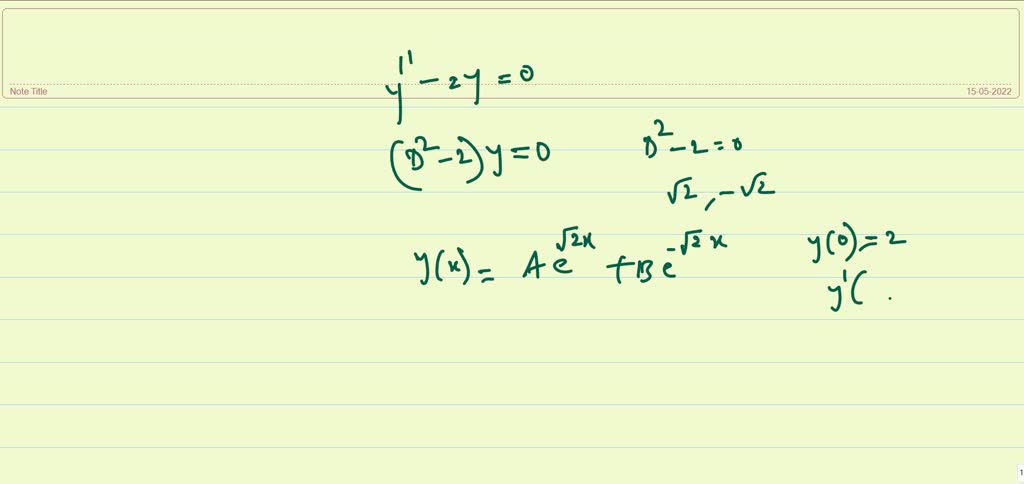 y'' - 2y = 0
Note Title 15-05-2022
(D² - 2) y = 0 D² - 2 = 0
√2, -√2
y(x) = A e^{√2x} + B e^{-√2x} y(0) = 2
y'(
1